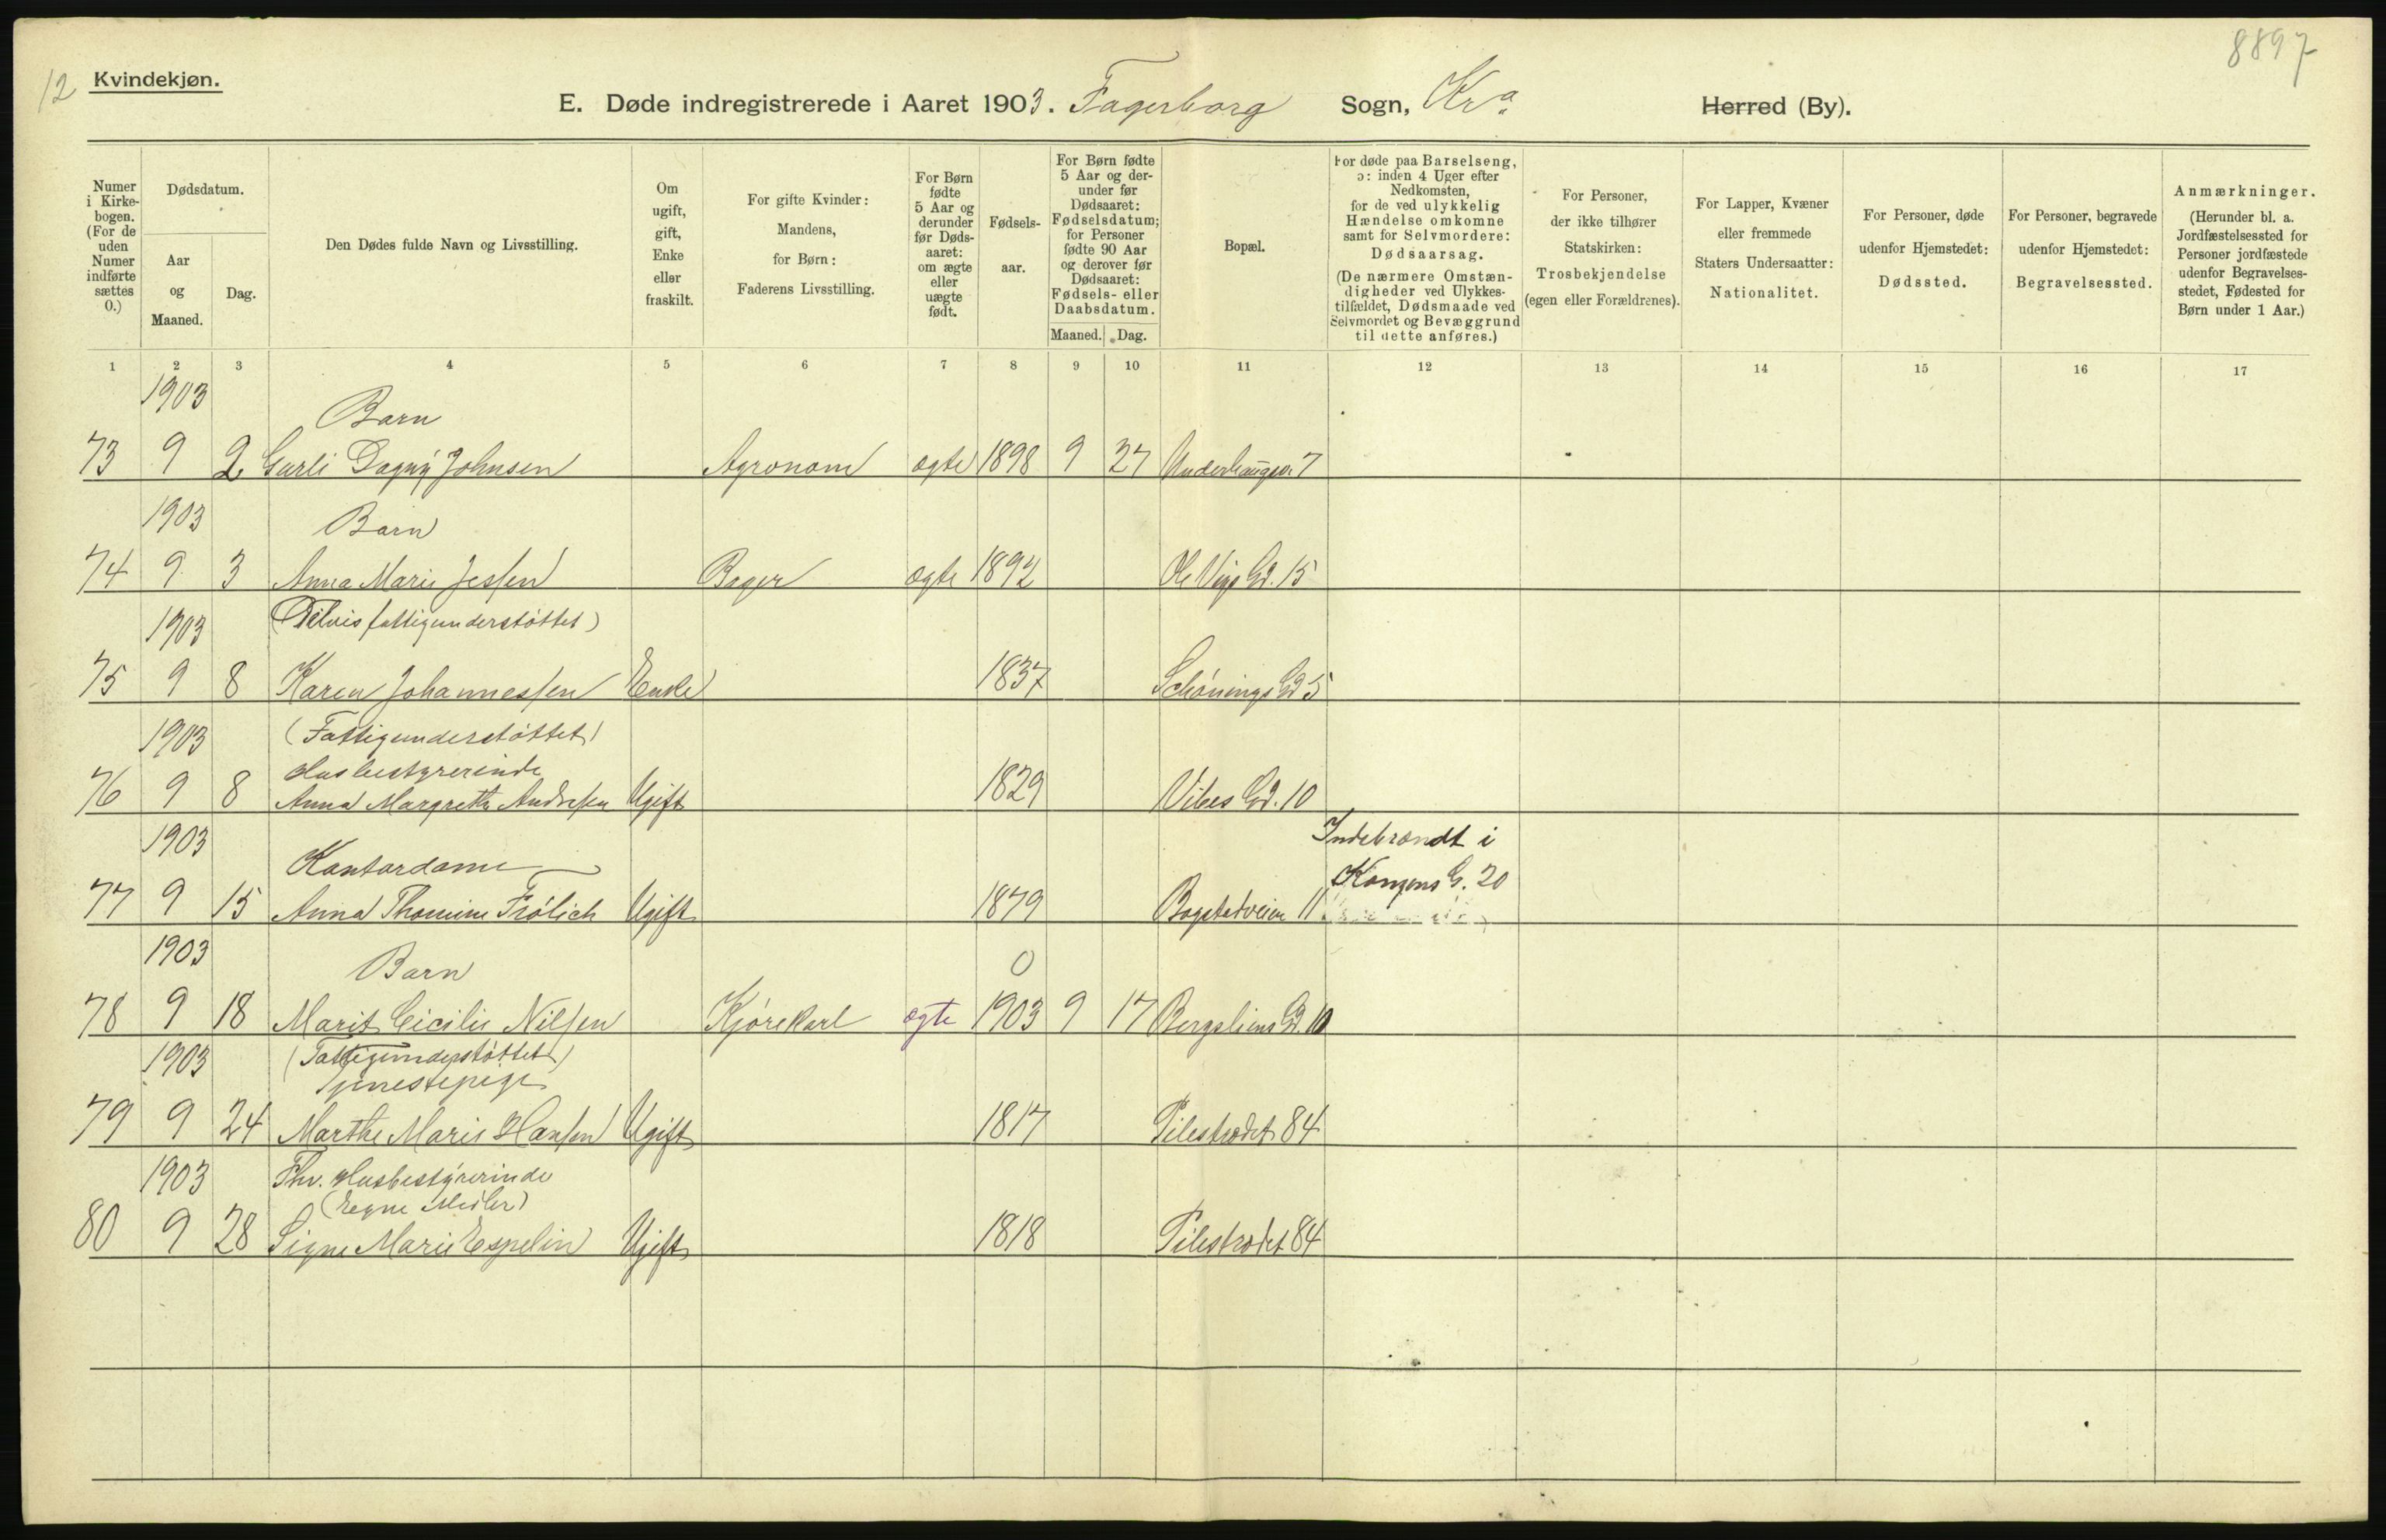 12
8897
Kvindekjøn.
E. Døde indregistrerede i Aaret 1903. Fagerborg Sogn, Kra. Herred (By).
Numer i Kirkebogen. (For de uden Numer indførte sættes 0.)
Dødsdatum.
Aar og Maaned.
Dag.
Den Dødes fulde Navn og Livsstilling.
Om ugift, gift, Enke eller fraskilt.
For gifte Kvinder: Mandens, for Børn: Faderens Livsstilling.
For Børn fødte 5 Aar og derunder før Dødsaaret: om ægte eller uægte født.
Fødselsaar.
For Børn fødte 5 Aar og derunder før Dødsaaret: Fødselsdatum; for Personer fødte 90 Aar og derover før Dødsaaret: Fødsels- eller Daabsdatum.
Maaned. Dag.
Bopæl.
For døde paa Barselseng, ɔ: inden 4 Uger efter Nedkomsten, for de ved ulykkelig Hændelse omkomne samt for Selvmordere: Dødsaarsag. (De nærmere Omstændigheder ved Ulykkestilfældet, Dødsmaade ved Selvmordet og Bevæggrund til dette anføres.)
For Personer, der ikke tilhører Statskirken: Trosbekjendelse (egen eller Forældrenes).
For Lapper, Kvæner eller fremmede Staters Undersaatter: Nationalitet.
For Personer, døde udenfor Hjemstedet: Dødssted.
For Personer, begravede udenfor Hjemstedet: Begravelsessted.
Anmærkninger. (Herunder bl. a. Jordfæstelsessted for Personer jordfæstede udenfor Begravelsesstedet, Fødested for Børn under 1 Aar.)
1 2 3 4 5 6 7 8 9 10 11 12 13 14 15 16 17
1903 Barn
73 9 2 Gurli Dagny Johnsen Agronom ægte 1898 9 27 Underhaugsv. 7
1903 Barn
74 9 3 Anna Marie Jessen Bager ægte 1892 Ole Vigs Gd. 15
1903 (Delvis fattigunderstøttet)
75 9 8 Karen Johannessen Enke 1837 Schønings Gd 5
1903 (Fattigunderstøttet)
Husbestyrerinde
76 9 8 Anna Margrethe Andresen Ugift 1829 Vibes Gd. 10
1903 Kontordame Indebrændt i
Kongens G. 20
77 9 15 Anna Thomine Frölich Ugift 1879 Bogstadveien 11
1903 Barn 0
78 9 18 Marit Cicilie Nilsen Kjørekarl ægte 1903 9 17 Bergsliens Gd. 10
1903 (Fattigunderstøttet)
Tjenestepige
79 9 24 Marthe Marie Hansen Ugift 1817 Pilestrædet 84
1903 Fhv. Husbestyrerinde
(Egne Midler)
80 9 28 Signe Marie Espelin Ugift 1818 Pilestrædet 84